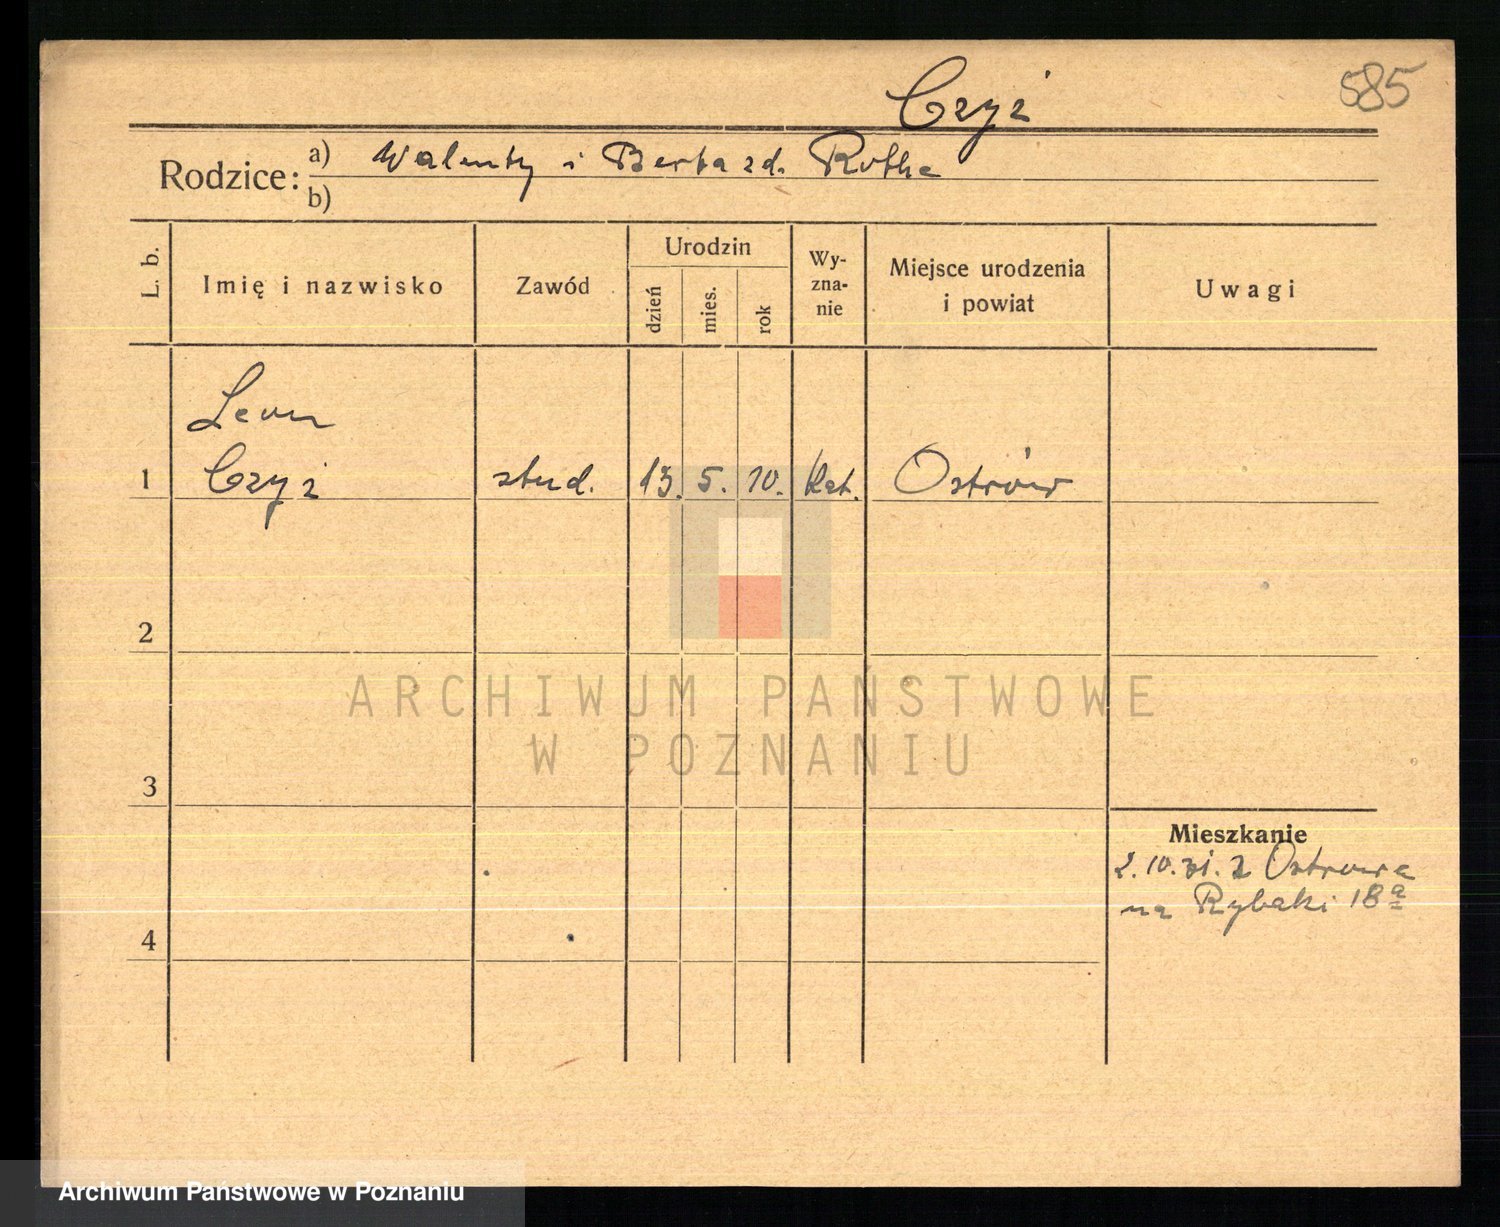 585
Czyż
Rodzice: a) Walenty i Berta zd. Rothe
b)
L. b.
Imię i nazwisko
Zawód
Urodzin
dzień
mies.
rok
Wy-
zna-
nie
Miejsce urodzenia
i powiat
Uwagi
Leon
1 Czyż stud. 13. 5. 10. kat. Ostrów
2
3
4
Mieszkanie
2.10.31. z Ostrowa
na Rybaki 18a
ARCHIWUM PAŃSTWOWE
W POZNANIU
Archiwum Państwowe w Poznaniu